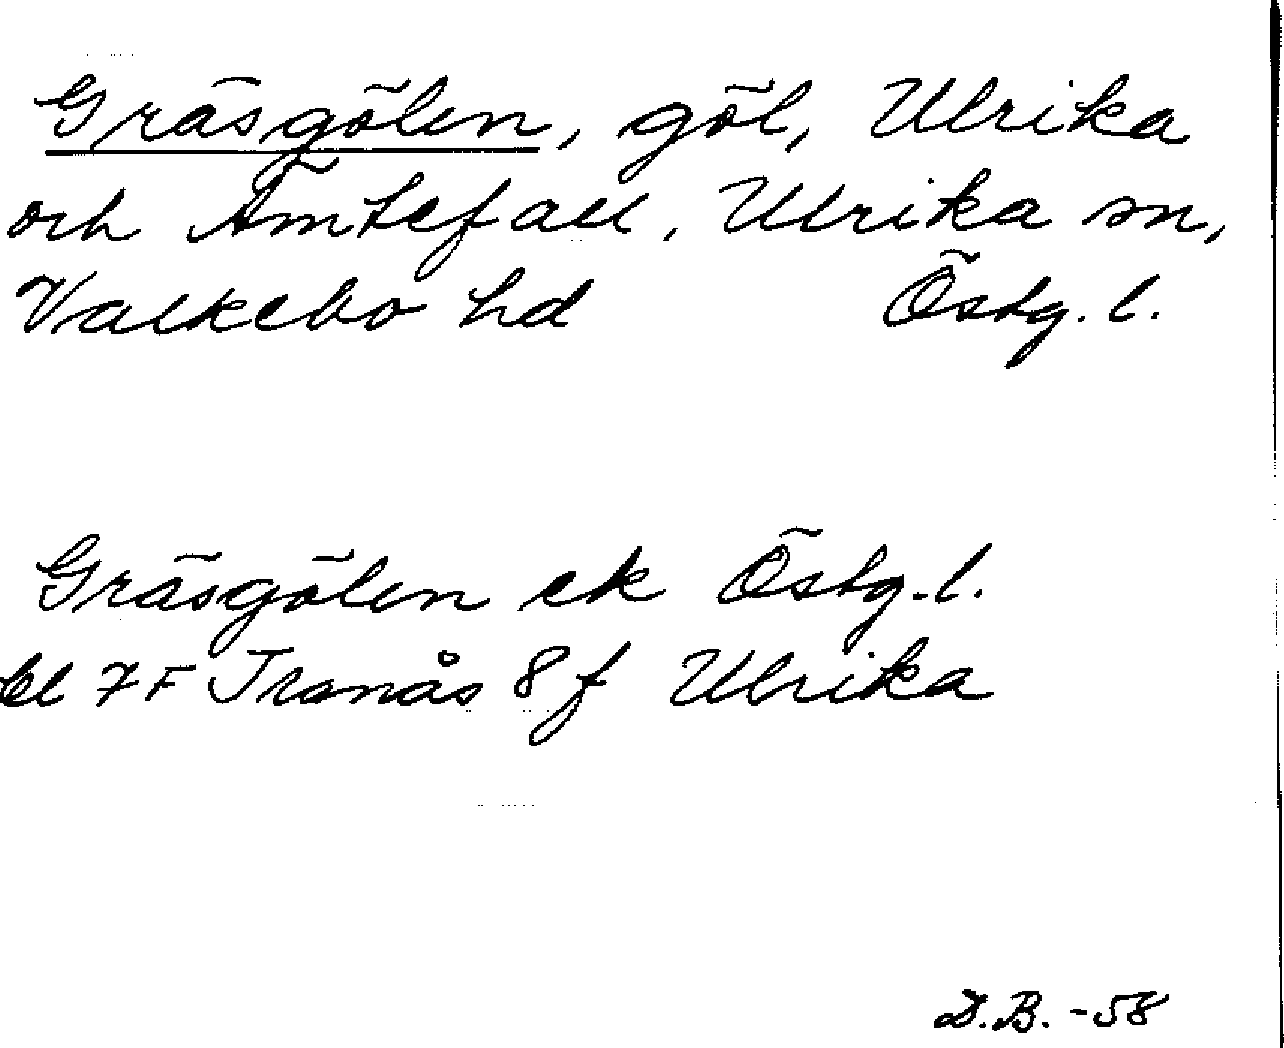 Gräsgölen, göl, Ulrika
och Ämtefall, Ulrika sn,
Valkebo hd Östg. l.
Gräsgölen ek Östg. l.
bl 7F Tranås 8f Ulrika
D.B. -58